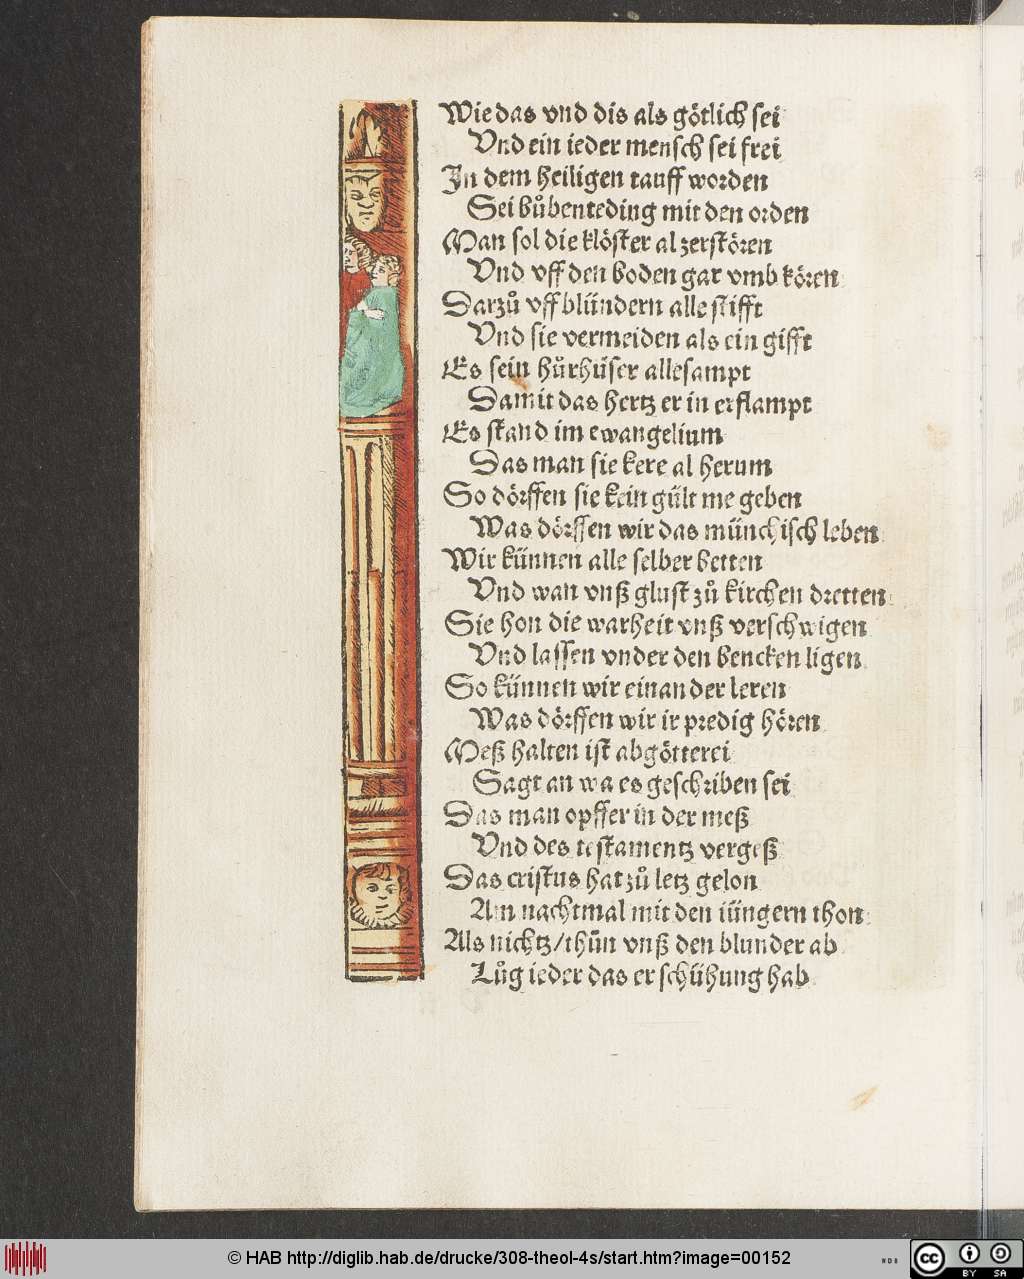 Wie das vnd dis als götlich sei
Vnd ein ieder mensch sei frei
In dem heiligen tauff worden
Sei bůbenteding mit den orden
Man sol die klöster al zerstören
Vnd vff den boden gar vmb kören
Darzů vff blündern alle stifft
Vnd sie vermeiden als ein gifft
Es sein hůrhüser allesampt
Damit das hertz er in erflampt
Es stand im ewangelium
Das man sie kere al herum
So dörffen sie kein gült me geben
Was dörffen wir das münchisch leben
Wir künnen alle selber betten
Vnd wan vnß glust zů kirchen dretten
Sie hon die warheit vnß verschwigen
Vnd lassen vnder den bencken ligen
So künnen wir einander leren
Was dörffen wir ir predig hören
Meß halten ist abgötterei
Sagt an wa es geschriben sei
Das man opffer in der meß
Vnd des testamentz vergeß
Das cristus hat zů letz gelon
Am nachtmal mit den iüngern thon
Als nichtz/thůn vnß den blunder ab
Lůg ieder das er schühung hab
© HAB http://diglib.hab.de/drucke/308-theol-4s/start.htm?image=00152
WDB
cc BY SA